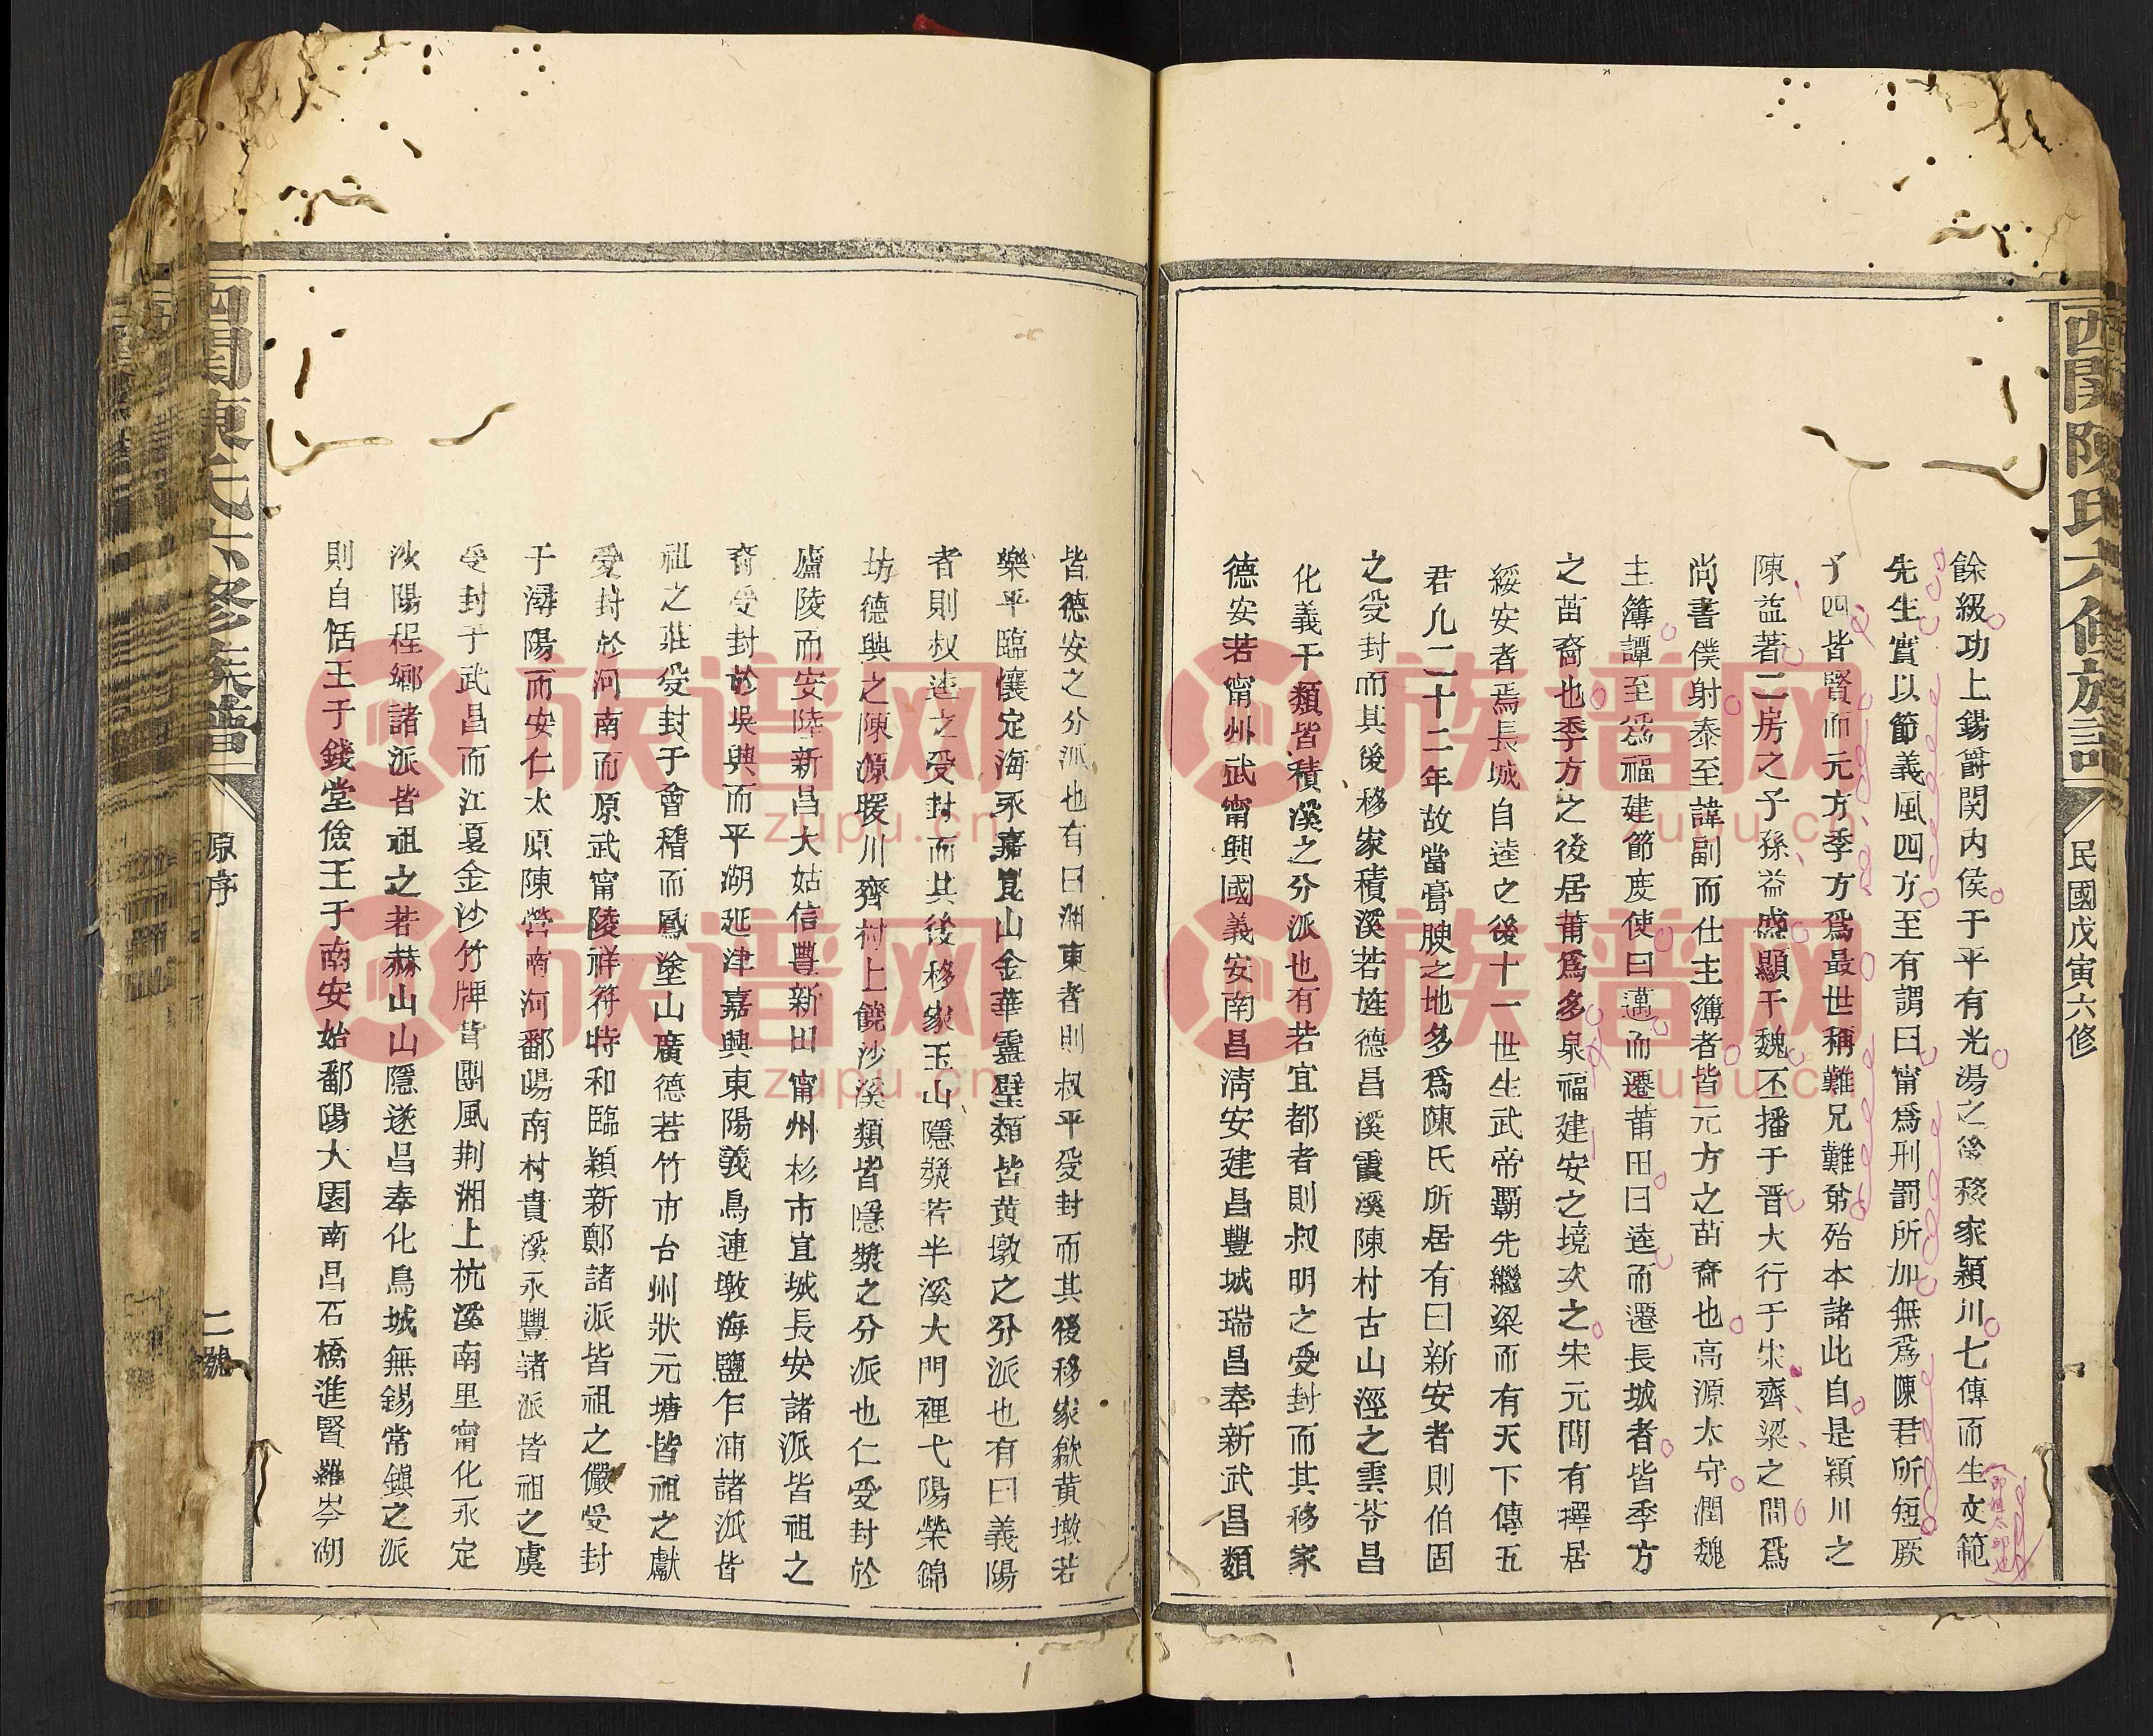 西関陳氏六修族譜
民國戊寅六修
餘級功上錫爵関内侯于平有光湯之後發家潁川七傳而生文範
先生實以節義風四方至有謂曰甯爲刑罰所加無爲陳君所短厥
子四皆賢而元方季方爲最世稱難兄難弟殆本諸此自是潁川之
陳益著二房之子孫益盛顯于魏丕播于晋大行于宋齊梁之間爲
尚書僕射泰至諱副而仕主簿者皆元方之苗裔也高源太守潤魏
主簿譚至爲福建節度使曰邁而遷莆田曰逵而遷長城者皆季方
之苗裔也季方之後居莆爲多泉福建安之境次之宋元間有擇居
綏安者焉長城自逵之後十一世生武帝霸先繼梁而有天下傳五
君凡二十二年故當膏腴之地多爲陳氏所居有曰新安者則伯固
之受封而其後移家積溪若旌德昌溪霞溪陳村古山涇之雲苓昌
化義干類皆積溪之分派也有若宜都者則叔明之受封而其移家
德安若甯州武甯興國義安南昌淸安建昌豐城瑞昌奉新武昌類
皆德安之分派也有曰湘東者則叔平受封而其後移家歙黄墩若
樂平臨懷定海永嘉崑山金華靈壁類皆黄墩之分派也有曰義陽
者則叔逵之受封而其後移家玉山隱漿若半溪大門裡弋陽榮錦
坊德興之陳源暖川齊村上饒沙溪類皆隱漿之分派也仁受封於
廬陵而安陸新昌大姑信豐新田甯州杉市宜城長安諸派皆祖之
裔受封於吳興而平湖延津嘉興東陽義烏連墩海鹽乍浦諸派皆
祖之莊受封于會稽而鳳塗山廣德若竹市台州狀元塘皆祖之獻
受封於河南而原武甯陵祥符特和臨潁新鄭諸派皆祖之儼受封
于潯陽而安仁太原陳營南河鄱陽南村貴溪永豐諸派皆祖之虞
受封于武昌而江夏金沙竹牌背團風荆湘上杭溪南里甯化永定
沙陽程鄉諸派皆祖之若赫山山隱遂昌奉化烏城無錫常鎭之派
則自恬王于錢堂儉王于南安始鄱陽大園南昌石橋進賢羅岑湖
西関陳氏六修族譜
原序
二號
族谱网
zupu.cn
族谱网
zupu.cn
族谱网
zupu.cn
族谱网
zupu.cn